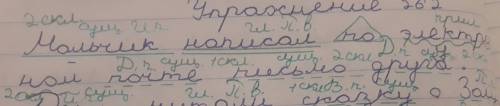 Упражнение 262
2скл. сущ. И.п. гл. П.в. прил.
Мальчик написал по электр
Д.п. сущ. 1скл. сущ. 2скл. Д.п.
ной почте письмо другу.
сущ. гл. П.в. 1скл В.п. сущ.
сказку о Зол